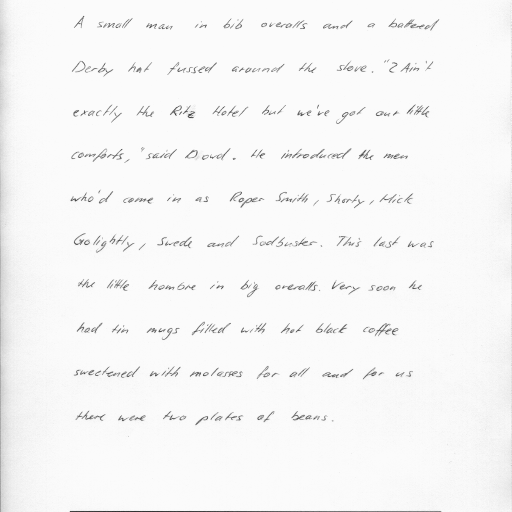 A small man in bib overalls and a battered
Derby hat fussed around the stove. "2 Ain't
exactly the Ritz Hotel but we've got our little
comforts," said Dowd. He introduced the men
who'd come in as Roper Smith, Shorty, Mick
Golightly, Swede and Sodbuster. This last was
the little hombre in big overalls. Very soon he
had tin mugs filled with hot black coffee
sweetened with molasses for all and for us
there were two plates of beans.